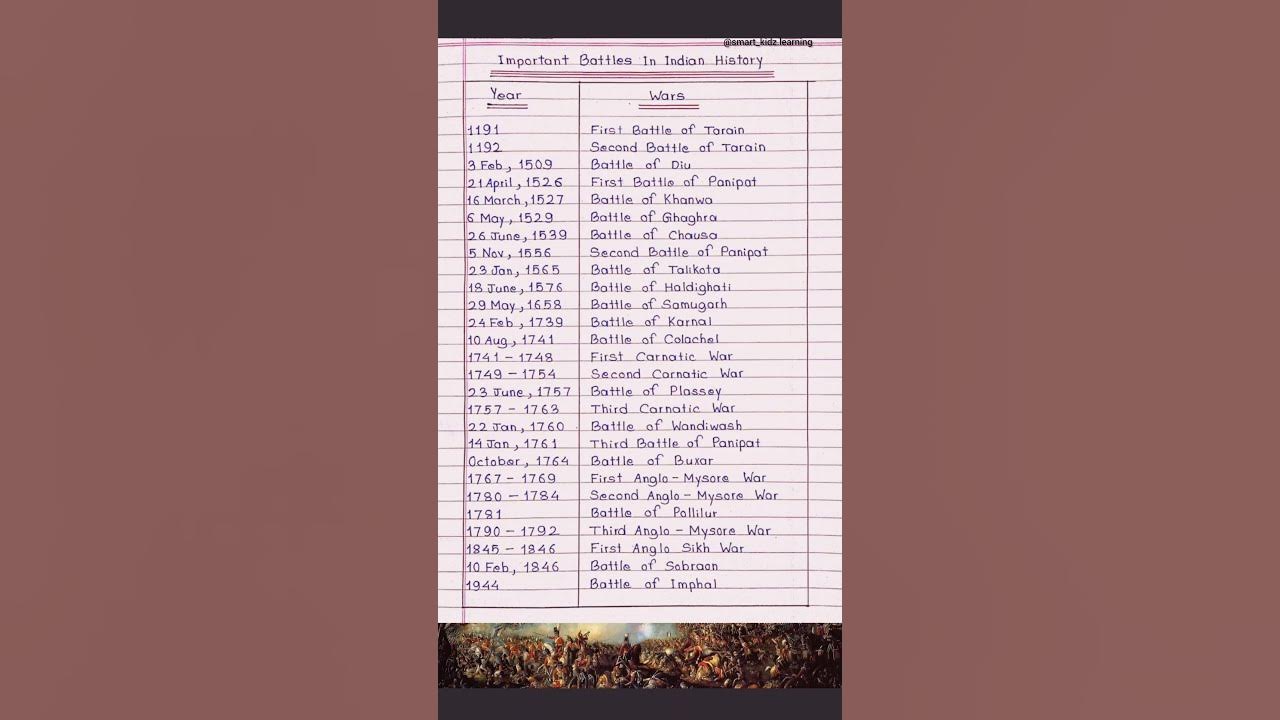 @smart_kidz.learning
Important Battles In Indian History
Year Wars
1191 First Battle of Tarain
1192 Second Battle of Tarain
3 Feb, 1509 Battle of Diu
21 April, 1526 First Battle of Panipat
16 March, 1527 Battle of Khanwa
6 May, 1529 Battle of Ghaghra
26 June, 1539 Battle of Chausa
5 Nov, 1556 Second Battle of Panipat
23 Jan, 1565 Battle of Talikota
18 June, 1576 Battle of Haldighati
29 May, 1658 Battle of Samugarh
24 Feb, 1739 Battle of Karnal
10 Aug, 1741 Battle of Colachel
1741 - 1748 First Carnatic War
1749 - 1754 Second Carnatic War
23 June, 1757 Battle of Plassey
1757 - 1763 Third Carnatic War
22 Jan, 1760 Battle of Wandiwash
14 Jan, 1761 Third Battle of Panipat
October, 1764 Battle of Buxar
1767 - 1769 First Anglo - Mysore War
1780 - 1784 Second Anglo - Mysore War
1781 Battle of Pollilur
1790 - 1792 Third Anglo - Mysore War
1845 - 1846 First Anglo Sikh War
10 Feb, 1846 Battle of Sobraon
1944 Battle of Imphal